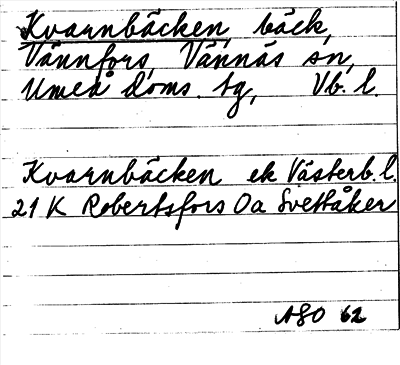 Kvarnbäcken, bäck,
Vännfors, Vännäs sn,
Umeå doms. tg, Vb. l.
Kvarnbäcken ek Västerb. l.
21 K Robertsfors Oa Svettåker
ASO 62